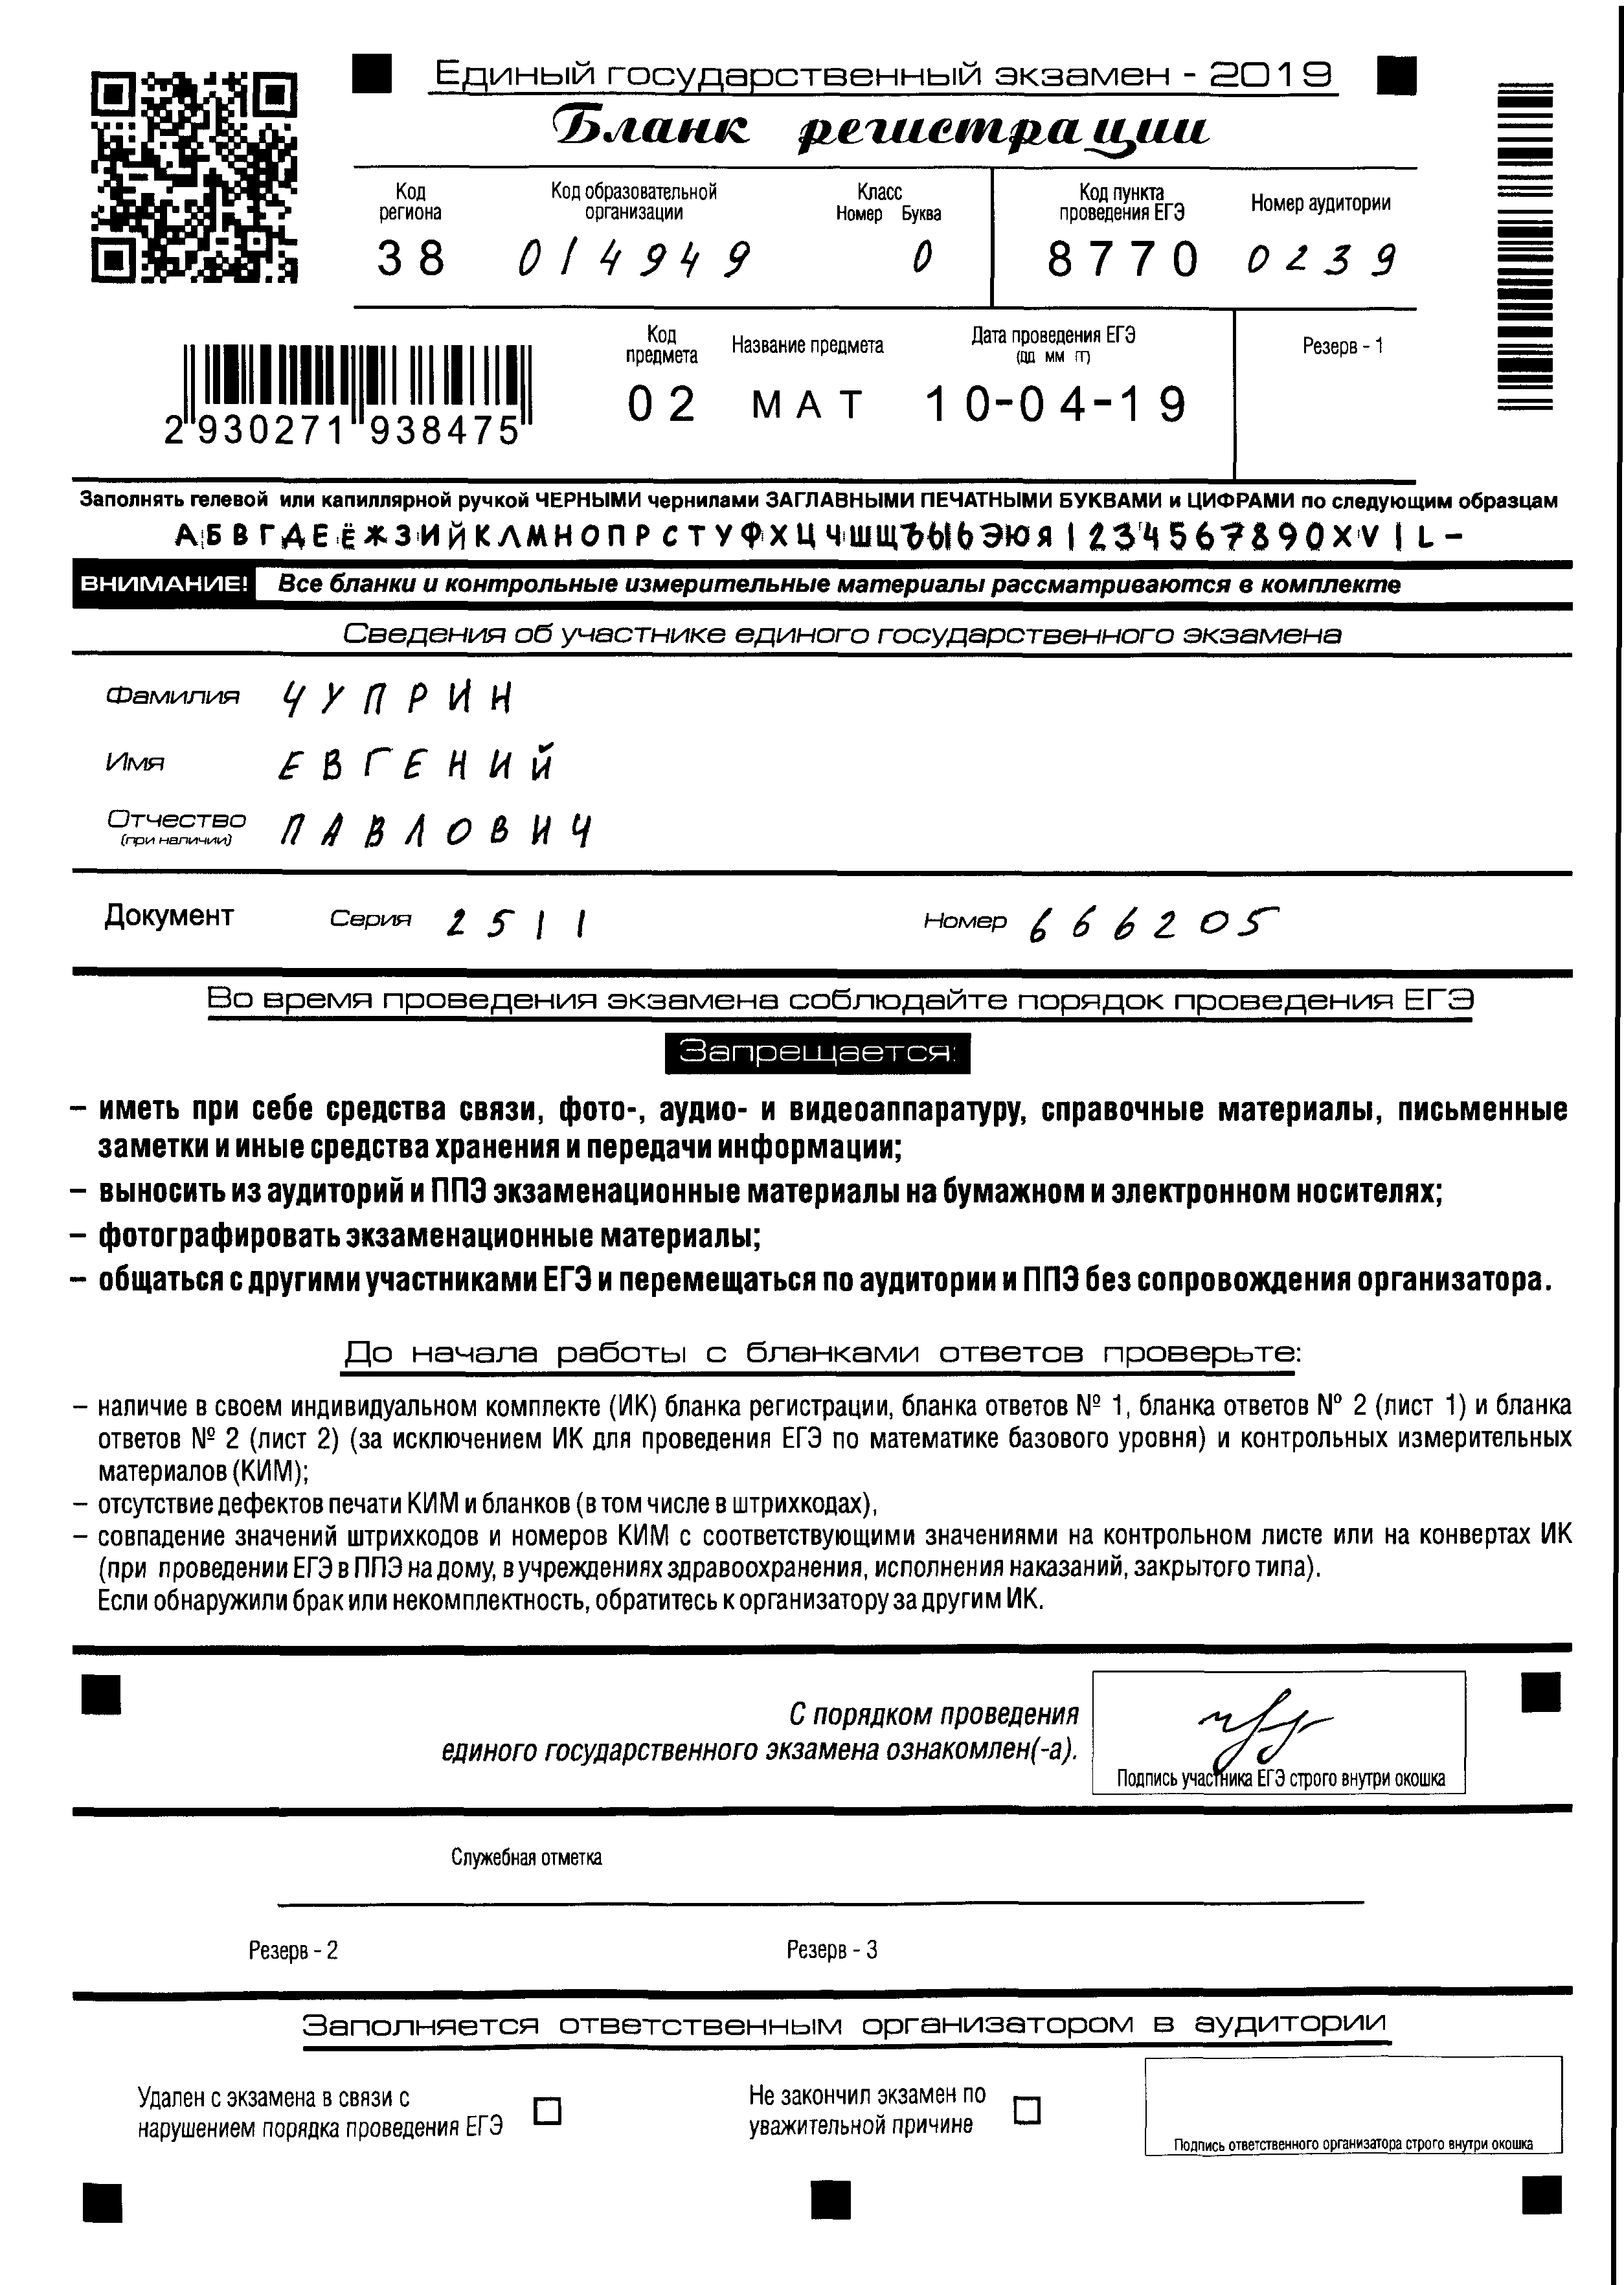 Единый государственный экзамен - 2019
Бланк регистрации
Код региона
Код образовательной организации
Класс
Номер Буква
Код пункта проведения ЕГЭ
Номер аудитории
38 014949 0 8770 0239
Код предмета
Название предмета
Дата проведения ЕГЭ
(ДД ММ ГГ)
Резерв - 1
02 МАТ 10-04-19
2 930271 938475
Заполнять гелевой или капиллярной ручкой ЧЕРНЫМИ чернилами ЗАГЛАВНЫМИ ПЕЧАТНЫМИ БУКВАМИ и ЦИФРАМИ по следующим образцам
АБВГДЕЁЖЗИЙКЛМНОПРСТУФХЦЧШЩЪЫЬЭЮЯ1234567890XVIL-
ВНИМАНИЕ! Все бланки и контрольные измерительные материалы рассматриваются в комплекте
Сведения об участнике единого государственного экзамена
Фамилия ЧУПРИН
Имя ЕВГЕНИЙ
Отчество ПАВЛОВИЧ
(при наличии)
Документ Серия 2511 Номер 666205
Во время проведения экзамена соблюдайте порядок проведения ЕГЭ
Запрещается:
– иметь при себе средства связи, фото-, аудио- и видеоаппаратуру, справочные материалы, письменные
заметки и иные средства хранения и передачи информации;
– выносить из аудиторий и ППЭ экзаменационные материалы на бумажном и электронном носителях;
– фотографировать экзаменационные материалы;
– общаться с другими участниками ЕГЭ и перемещаться по аудитории и ППЭ без сопровождения организатора.
До начала работы с бланками ответов проверьте:
– наличие в своем индивидуальном комплекте (ИК) бланка регистрации, бланка ответов № 1, бланка ответов № 2 (лист 1) и бланка
ответов № 2 (лист 2) (за исключением ИК для проведения ЕГЭ по математике базового уровня) и контрольных измерительных
материалов (КИМ);
– отсутствие дефектов печати КИМ и бланков (в том числе в штрихкодах),
– совпадение значений штрихкодов и номеров КИМ с соответствующими значениями на контрольном листе или на конвертах ИК
(при проведении ЕГЭ в ППЭ на дому, в учреждениях здравоохранения, исполнения наказаний, закрытого типа).
Если обнаружили брак или некомплектность, обратитесь к организатору за другим ИК.
С порядком проведения
единого государственного экзамена ознакомлен(-а).
Подпись участника ЕГЭ строго внутри окошка
Служебная отметка
Резерв - 2 Резерв - 3
Заполняется ответственным организатором в аудитории
Удален с экзамена в связи с
нарушением порядка проведения ЕГЭ
Не закончил экзамен по
уважительной причине
Подпись ответственного организатора строго внутри окошка